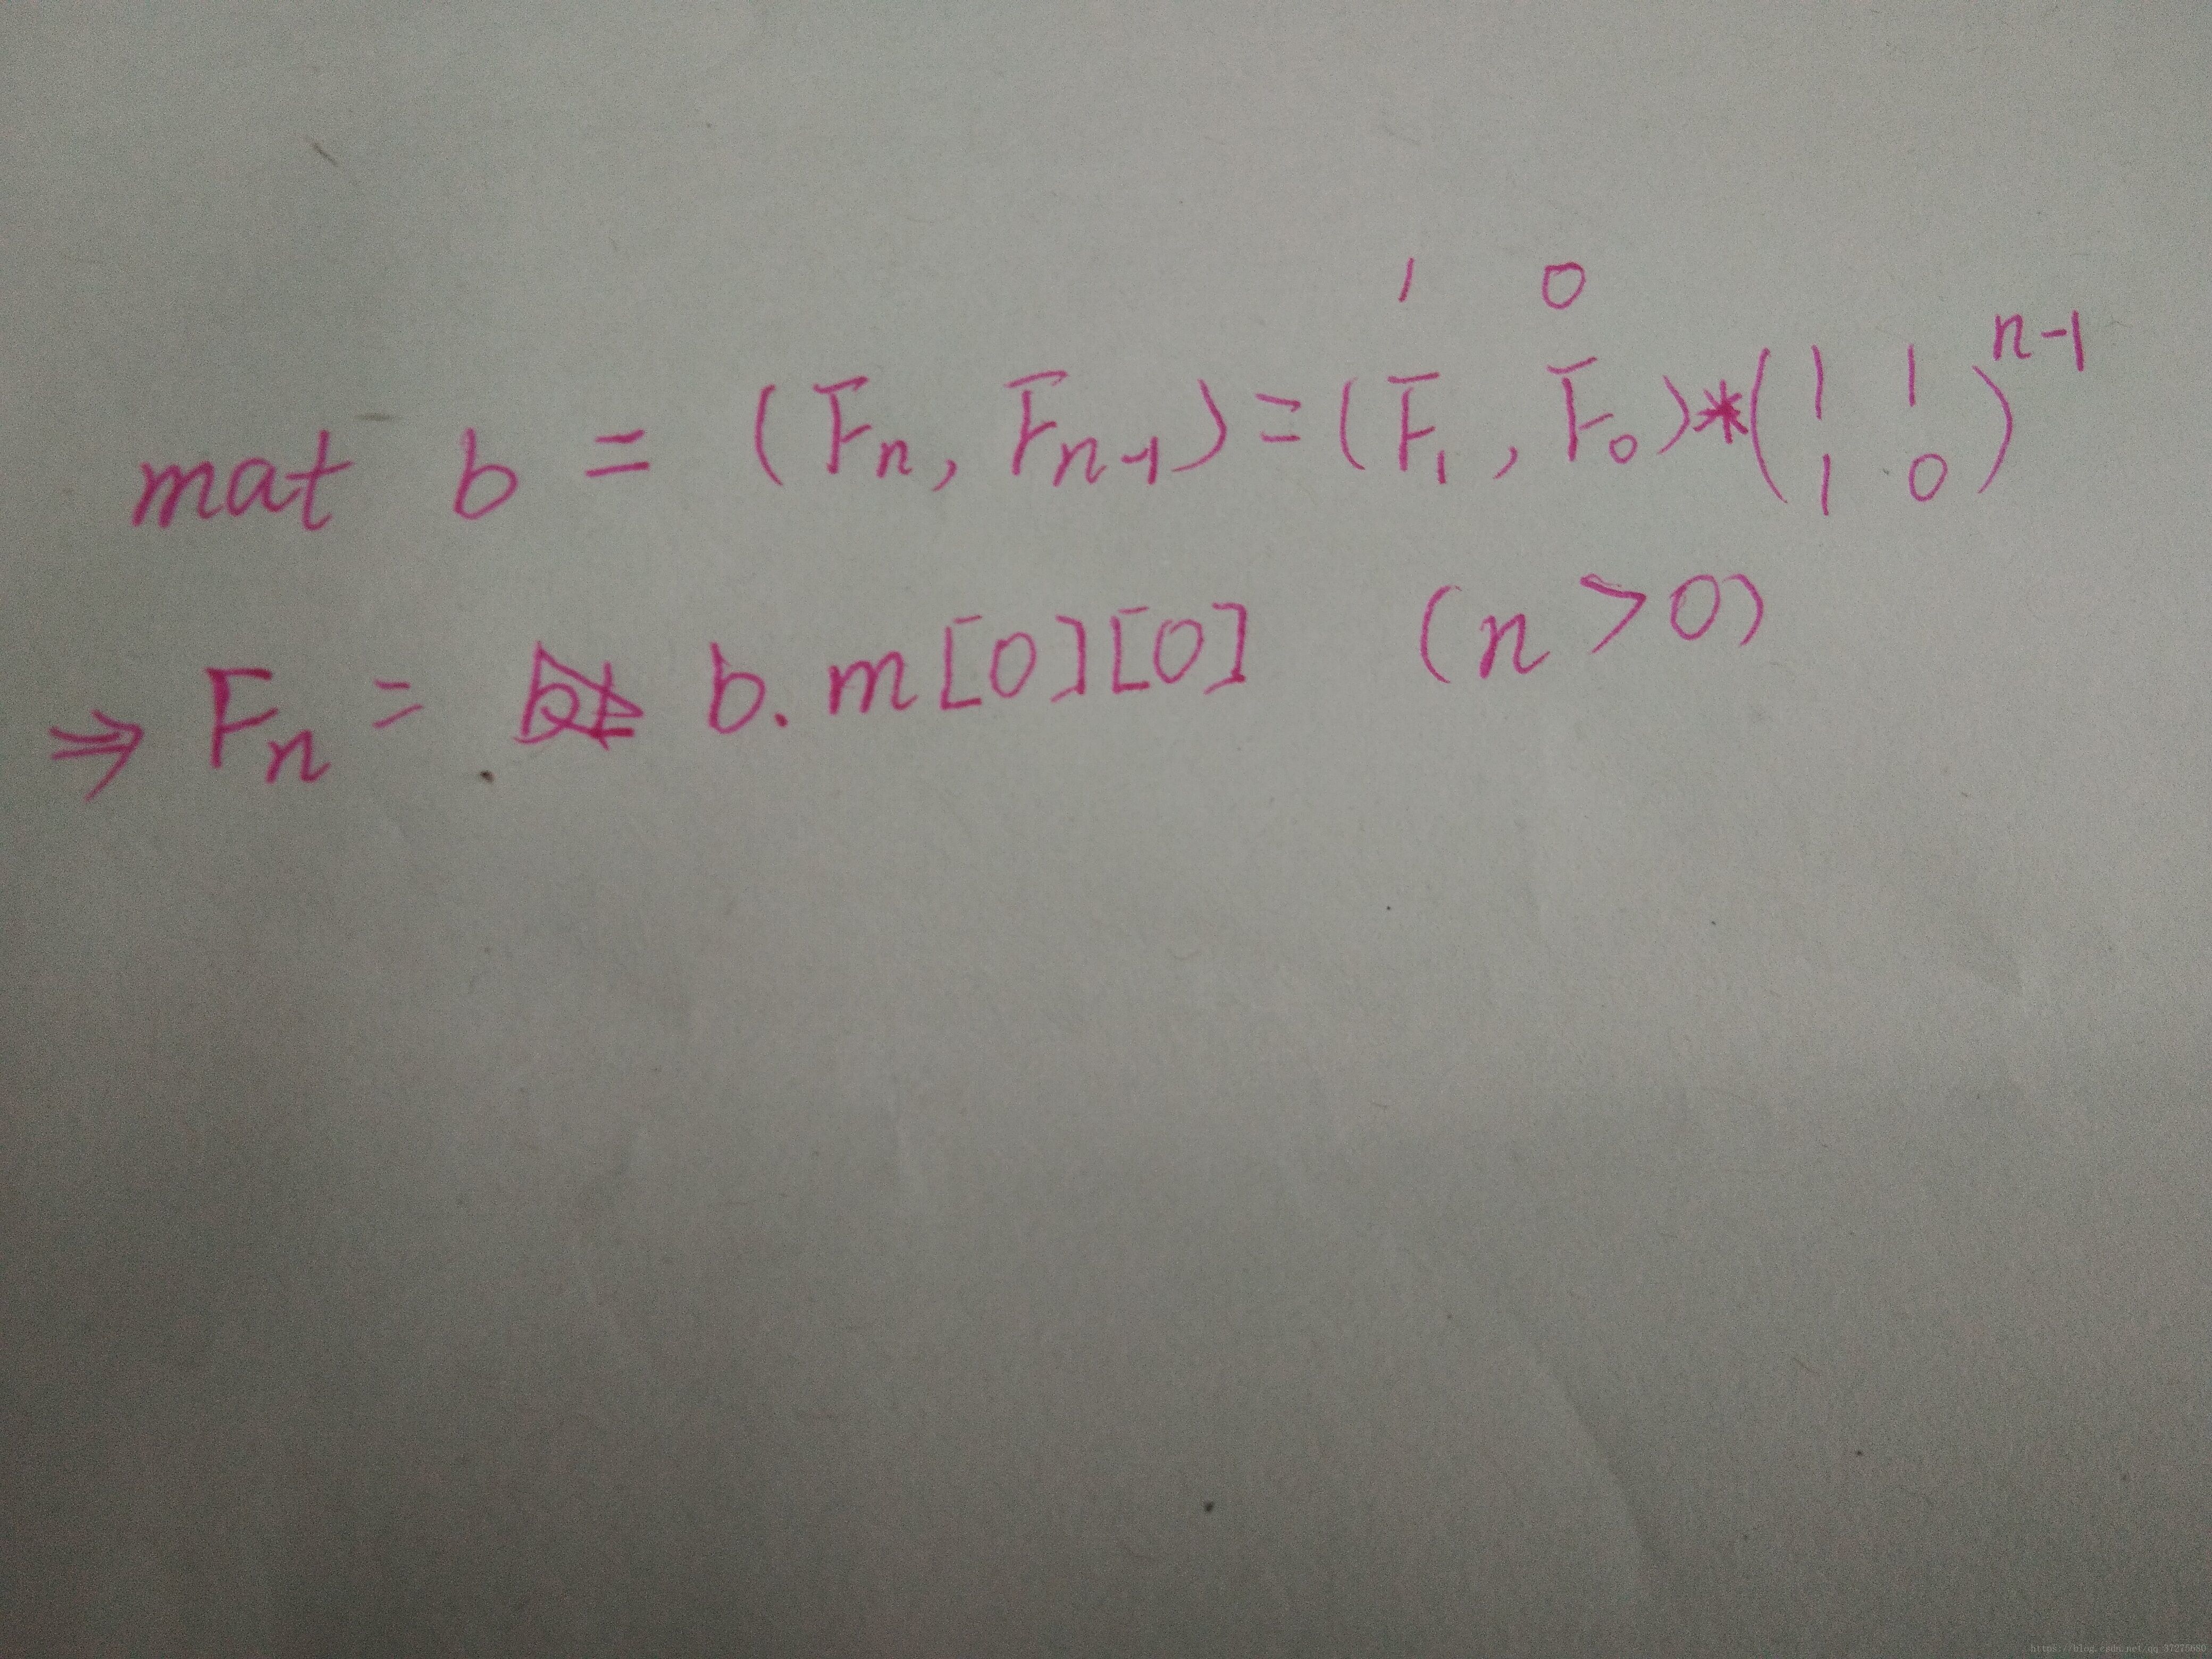 1 0
mat b = (Fn, Fn-1) = (F1, F0) * (1 1
1 0)^n-1
⇒ Fn = b.m[0][0] (n>0)
https://blog.csdn.net/qq_37275680